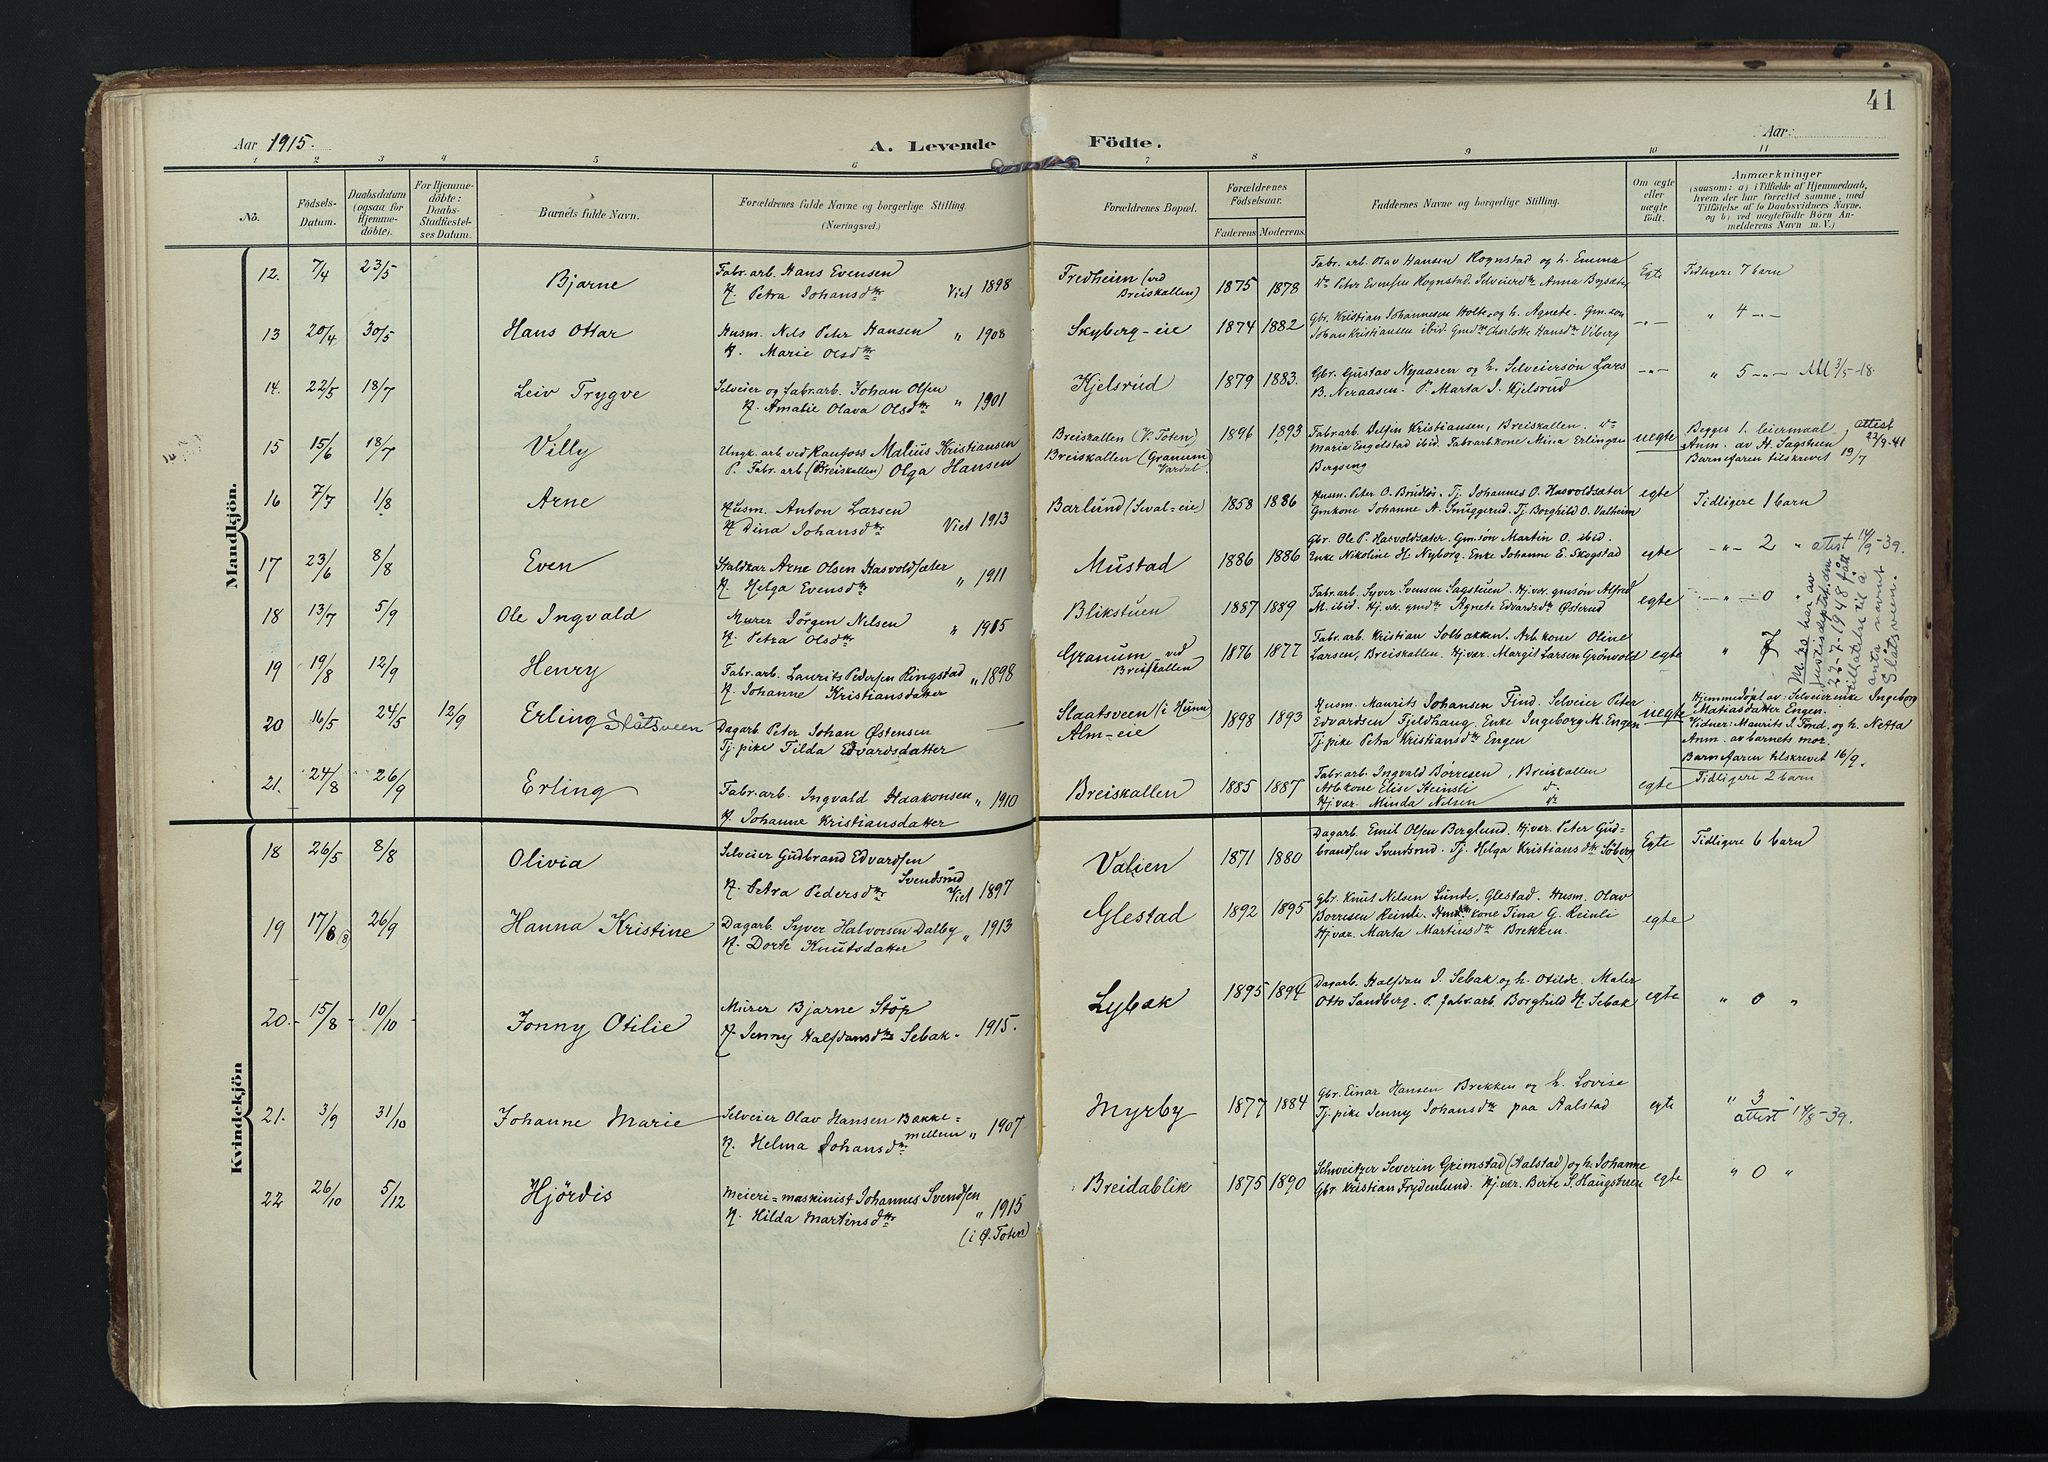 41
Aar 1915.
A. Levende Födte.
Aar:
1 2 3 4 5 6 7 8 9 10 11
No.
Födsels-Datum.
Daabsdatum (ogsaa for Hjemme-döbte).
For Hjemme-döbte: Daabs-Stadfæstel-ses Datum.
Barnets fulde Navn.
Forældrenes fulde Navne og borgerlige Stilling.
(Næringsvei.)
Forældrenes Bopæl.
Forældrenes Födselsaar.
Faderens. Moderens.
Faddernes Navne og borgerlige Stilling.
Om ægte eller uægte födt.
Anmærkninger
(saasom: a) i Tilfælde af Hjemmedaab, hvem der har forrettet samme, med Tilföielse af to Daabsvidners Navne, og b) ved uægtefödte Börn An-melderens Navn m. V.)
Mandkjön.
12. 7/4 23/5 Bjarne
Fabr. arb. Hans Evensen
H. Petra Johansdtr Viet 1898
Fredheim (ved Breiskallen) 1875 1878
Fabr. arb. Olav Hansen Hognstad og h. Emma
Peter Evensen Hognstad. Selveierdtr Anna Bysæter
Egte Tidligere 7 barn
13 20/4 30/5 Hans Ottar
Husm. Nils Peter Hansen
H. Marie Olsdtr " 1908
Skyberg-eie 1874 1882
Gbr. Kristian Johannesen Holte og h. Agnete. Gm.søn
Johan Kristiansen ibid. Gmdtr Charlotte Hansdtr Viberg
-"- " 4 -"-
14. 22/5 18/7 Leiv Trygve
Selveier og fabr. arb. Johan Olsen
H. Amalie Olava Olsdtr " 1901
Kjelsrud 1879 1883.
Gbr. Gustav Nyaasen og h. Selveiersøn Lars
B. Neraasen. P. Marta J. Kjelsrud
-"- " 5 -"- Att 3/5-18.
15 15/6 18/7 Villy
Ungk. arb. ved Raufoss Malius Kristiansen
P. Fabr. arb. (Breiskallen) Olga Hansen
Breiskallen (V. Toten)
Breiskallen (Granum) Vardal. 1896 1893
Fabr. arb. Delfin Kristiansen, Breiskallen.
Maria Engelstad ibid. Fabrarbkone Mina Erlingsen
Bergseng
uegte Begges 1. leiermaal, attest 22/9-41
Anm. av H. Sagstuen
Barnefaren tilskrevet 19/7
16 7/7 1/8 Arne
Husm. Anton Larsen
H Dina Johansdtr Viet 1913
Barlund (Seval-eie) 1858 1886
Husm. Peter O. Brudløs. Tj. Johannes O. Hasvoldsæter
Gmkone Johanne A. Snuggerud. Tj. Borghild O. Valheim
egte Tidligere 1 barn
17 23/6 8/8 Even
Staldkar Arne Olsen Hasvoldsæter
H. Helga Evensdtr " 1911
Mustad 1886 1886
Gbr. Ole P. Hasvoldsæter. Gmsøn Martin O. ibid.
Enke Nikoline H. Nyborg. Enke Johanne E. Skogstad
egte -"- 2 " attest 14/9-39.
18 13/7 5/9 Ole Ingvald
Murer Jörgen Nilsen
H. Petra Olsdtr " 1915
Blikstuen 1887 1889
Fabr. arb. Syver Svensen Sagstuen. Hj.vær. gmsøn Alfred
M. ibid. Hj.vær. gmdtr Agnete Edvardsdtr Østerud
egte -"- 0 "
19 19/8 12/9 Henry
Fabr. arb. Laurits Pedersen Ringstad
H. Johanne Kristiansdatter " 1898
Granum ved Breiskallen 1876 1877
Fabr. arb. Kristian Solbakken. Arb.kone Oline
Larsen, Breiskallen. Hj.vær. Margit Larsen Grönvold
egte " 7
20 16/5 24/5 12/9 Erling Slåtsveen
Dagarb. Peter Johan Østensen
Tj.pike Tilda Edvardsdatter
Slaatsveen (i Hunn)
Alm-eie 1898 1893
Husm. Maurits Johansen Find. Selveier Peter
Edvardsen Fjeldhaug. Enke Ingeborg M. Engen
Tj.pike Petra Kristiansdtr Engen
uegte Hjemmedøpt av Selveierenke Ingeborg
Matiasdatter Engen.
Vidner: Maurits J. Find. og h. Netta
Anm. av barnets mor.
Barnefaren tilskrevet 16/9.
Nr. 20 har av justisdept. den 27-7-1948 fått tillatelse til å anta navnet Slåtsveen.
21. 24/8 26/9 Erling
Fabr. arb. Ingvald Haakonsen
H. Johanne Kristiansdatter " 1910
Breiskallen 1885 1887
Fabr. arb. Ingvald Börresen, Breiskallen
Arbkone Elise Heinsli
Hj.vær. Minda Nilsen
egte Tidligere 2 barn
Kvindekjön
18 26/5 8/8 Olivia
Selveier Gudbrand Edvardsen Svendsrud
H. Petra Pedersdtr Viet 1897
Valien 1871 1880
Dagarb. Emil Olsen Berglund. Hj.vær. Peter Gud-
brandsen Svendsrud. Tj. Helga Kristiansdtr Söberg
Egte Tidligere 6 barn
19 17/8 (8) 26/9 Hanna Kristine
Dagarb. Syver Halvorsen Dalby
H. Dorte Knutsdatter " 1913
Glestad 1892 1895
Gbr. Knut Nilsen Lunde, Glestad. Husm. Olav
Borresen Reinli. Husm.kone Tina G. Reinli
Hj.vær. Marta Martinsdtr Brekken.
egte
20. 15/8 10/10 Jonny Otilie
Murer Bjarne Stöp
H. Jenny Halfdansdtr Sebak - 1915.
Lybæk 1895 1894
Dagarb. Halfdan J. Sebak og h. Otilde. Maler
Otto Sandberg. P. fabr. arb. Borghild H. Sebak
egte " 0 "
21. 3/9 31/10 Johanne Marie
Selveier Olav Hansen Bakke-mellem
H. Helma Johansdtr " 1907
Myrby 1877 1884
Gbr. Einar Hansen Brekken og h. Lovise
Tj.pike Jenny Johansdtr paa Aalstad
egte " 3 "
attest 14/8-39.
22 26/10 5/12 Hjördis
Meieri-maskinist Johannes Svendsen
H. Hilda Martinsdtr " 1915
(i Ø. Toten)
Breidablik 1875 1890
Schweitzer Severin Grimstad (Aalstad) og h. Johanne
Gbr. Kristian Frydenlund. Hj.vær. Berte S. Haugstuen
egte " 0 "